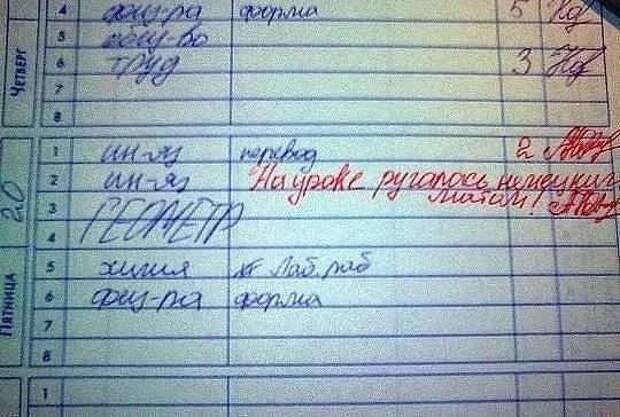 4 физ-ра форма 5
ЧЕТВЕРГ
5 общ-во
6 труд 3
7
8
20
1 ин-яз перевод 2
2 ин-яз На уроке ругалось немецким
3 ГЕОМЕТР матом!
4
ПЯТНИЦА
5 химия Лаб. раб
6 физ-ра форма
7
8
1